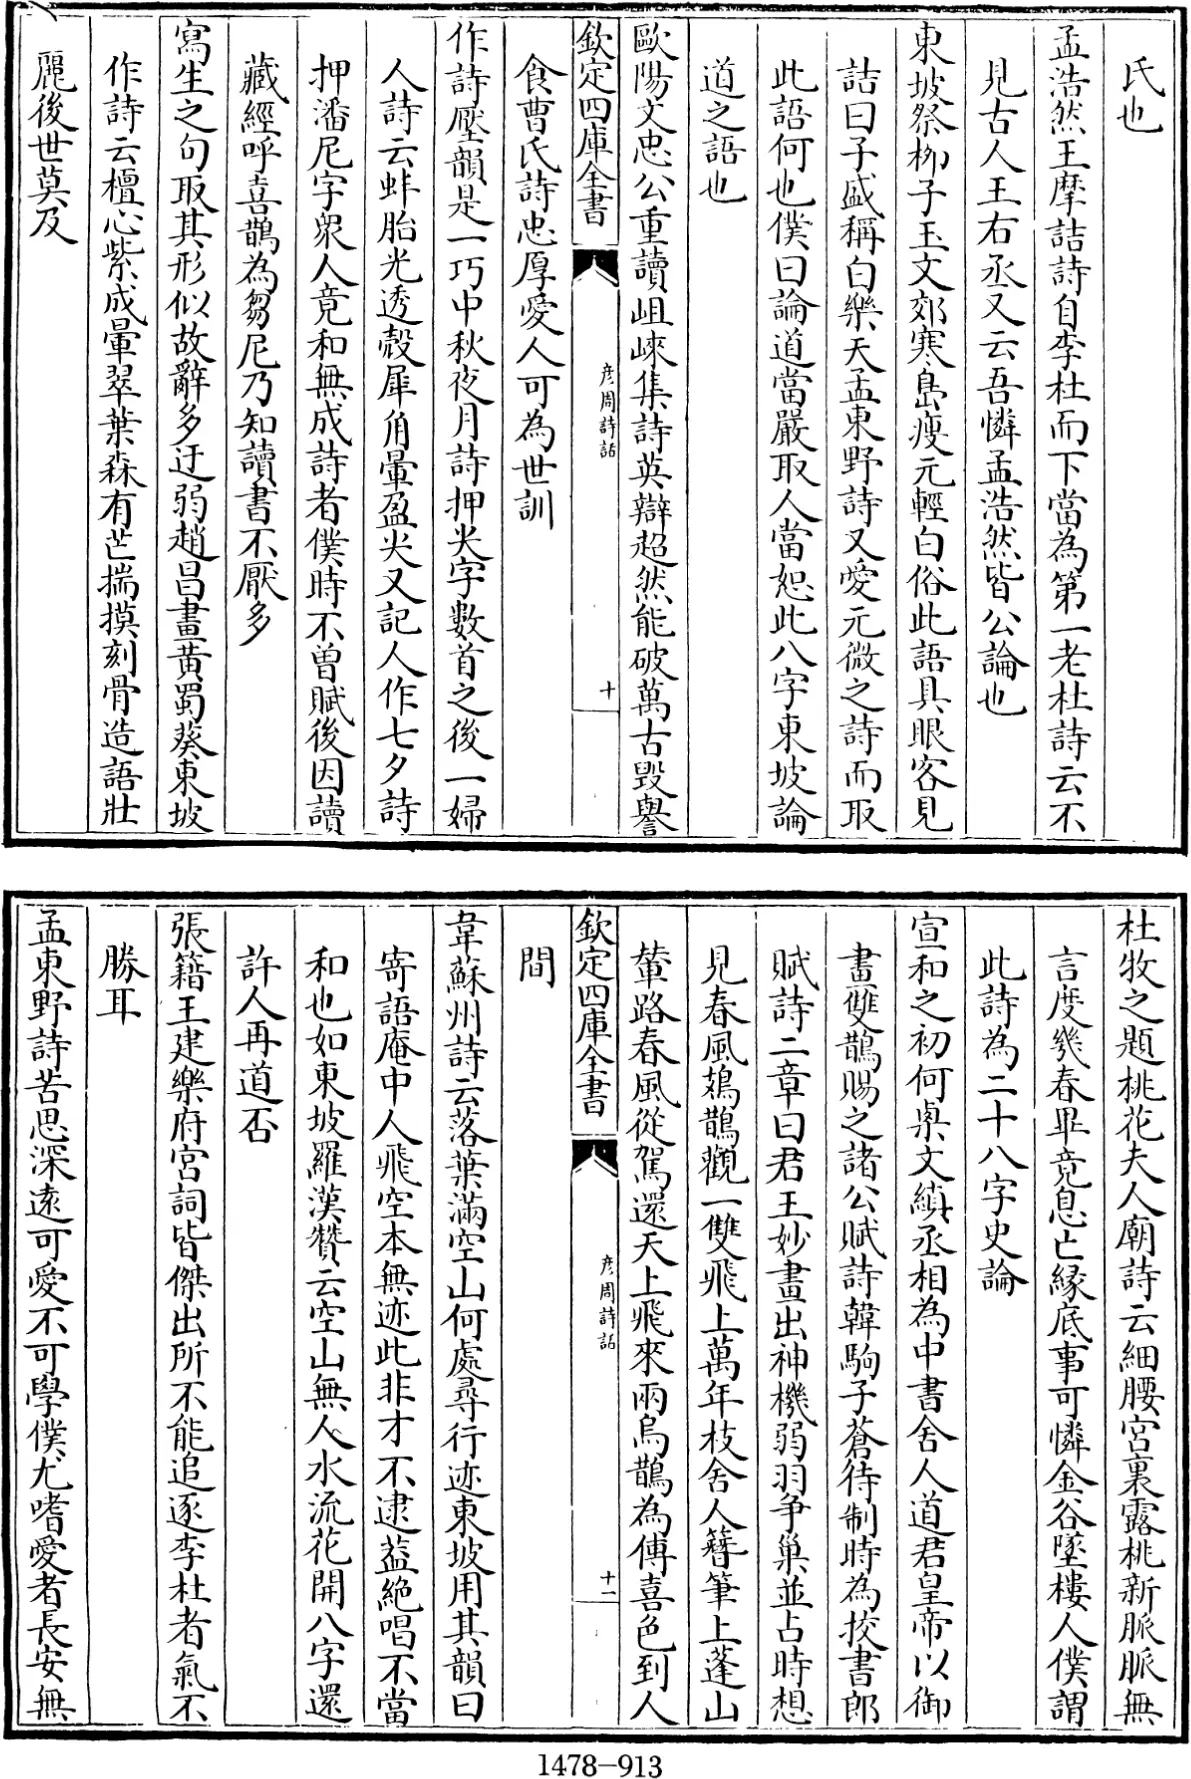 氏也
孟浩然王摩詰詩自李杜而下當為第一老杜詩云不
見古人王右丞又云吾憐孟浩然皆公論也
東坡祭柳子玉文郊寒島瘦元輕白俗此語具眼客見
詰曰子盛稱白樂天孟東野詩又愛元微之詩而取
此語何也僕曰論道當嚴取人當恕此八字東坡論
道之語也
歐陽文忠公重讀徂徠集詩英辯超然能破萬古毀譽
欽定四庫全書
彦周詩話
十
食曹氏詩忠厚愛人可為世訓
作詩壓韻是一巧中秋夜月詩押尖字數首之後一婦
人詩云蚌胎光透殼犀角暈盈尖又記人作七夕詩
押潘尼字衆人竟和無成詩者僕時不曽賦後因讀
藏經呼喜鵲為芻尼乃知讀書不厭多
寫生之句取其形似故辭多迂弱趙昌畫黄蜀葵東坡
作詩云檀心紫成暈翠葉森有芒揣摸刻骨造語壯
麗後世莫及
杜牧之題桃花夫人廟詩云細腰宮裏露桃新脈脈無
言度幾春畢竟息亡縁底事可憐金谷墜樓人僕謂
此詩為二十八字史論
宣和之初何㮚文縝丞相為中書舍人道君皇帝以御
畫雙鵲賜之諸公賦詩韓駒子蒼待制時為挍書郎
賦詩二章曰君王妙畫出神機弱羽爭巢並占時想
見春風鳷鵲觀一雙飛上萬年枝舍人簪筆上蓬山
輦路春風從駕還天上飛來兩烏鵲為傳喜色到人
欽定四庫全書
彦周詩話
十一
間
韋蘇州詩云落葉滿空山何處尋行迹東坡用其韻曰
寄語庵中人飛空本無迹此非才不逮葢絶唱不當
和也如東坡羅漢贊云空山無人水流花開八字還
許人再道否
張籍王建樂府宮詞皆傑出所不能追逐李杜者氣不
勝耳
孟東野詩苦思深逺可愛不可學僕尤嗜愛者長安無
1478-913